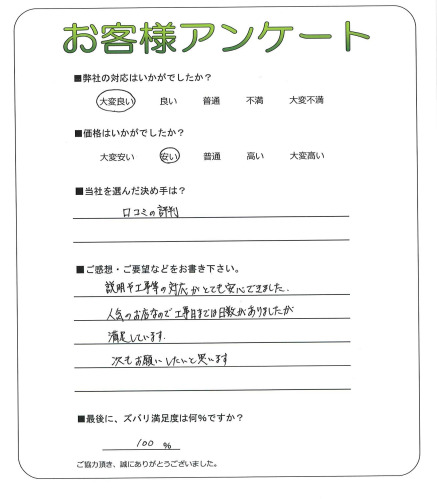 お客様アンケート
■弊社の対応はいかがでしたか？
大変良い 良い 普通 不満 大変不満
■価格はいかがでしたか？
大変安い 安い 普通 高い 大変高い
■当社を選んだ決め手は？
口コミの評判
■ご感想・ご要望などをお書き下さい。
説明や工事等の対応がとても安心できました.
人気のお店なので工事日までは日数がありましたが
満足しています.
次もお願いしたいと思います
■最後に、ズバリ満足度は何％ですか？
100 ％
ご協力頂き、誠にありがとうございました。